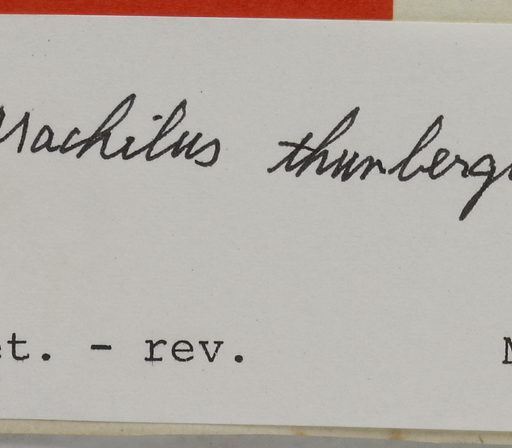 Machilus thunbergi
et. - rev.